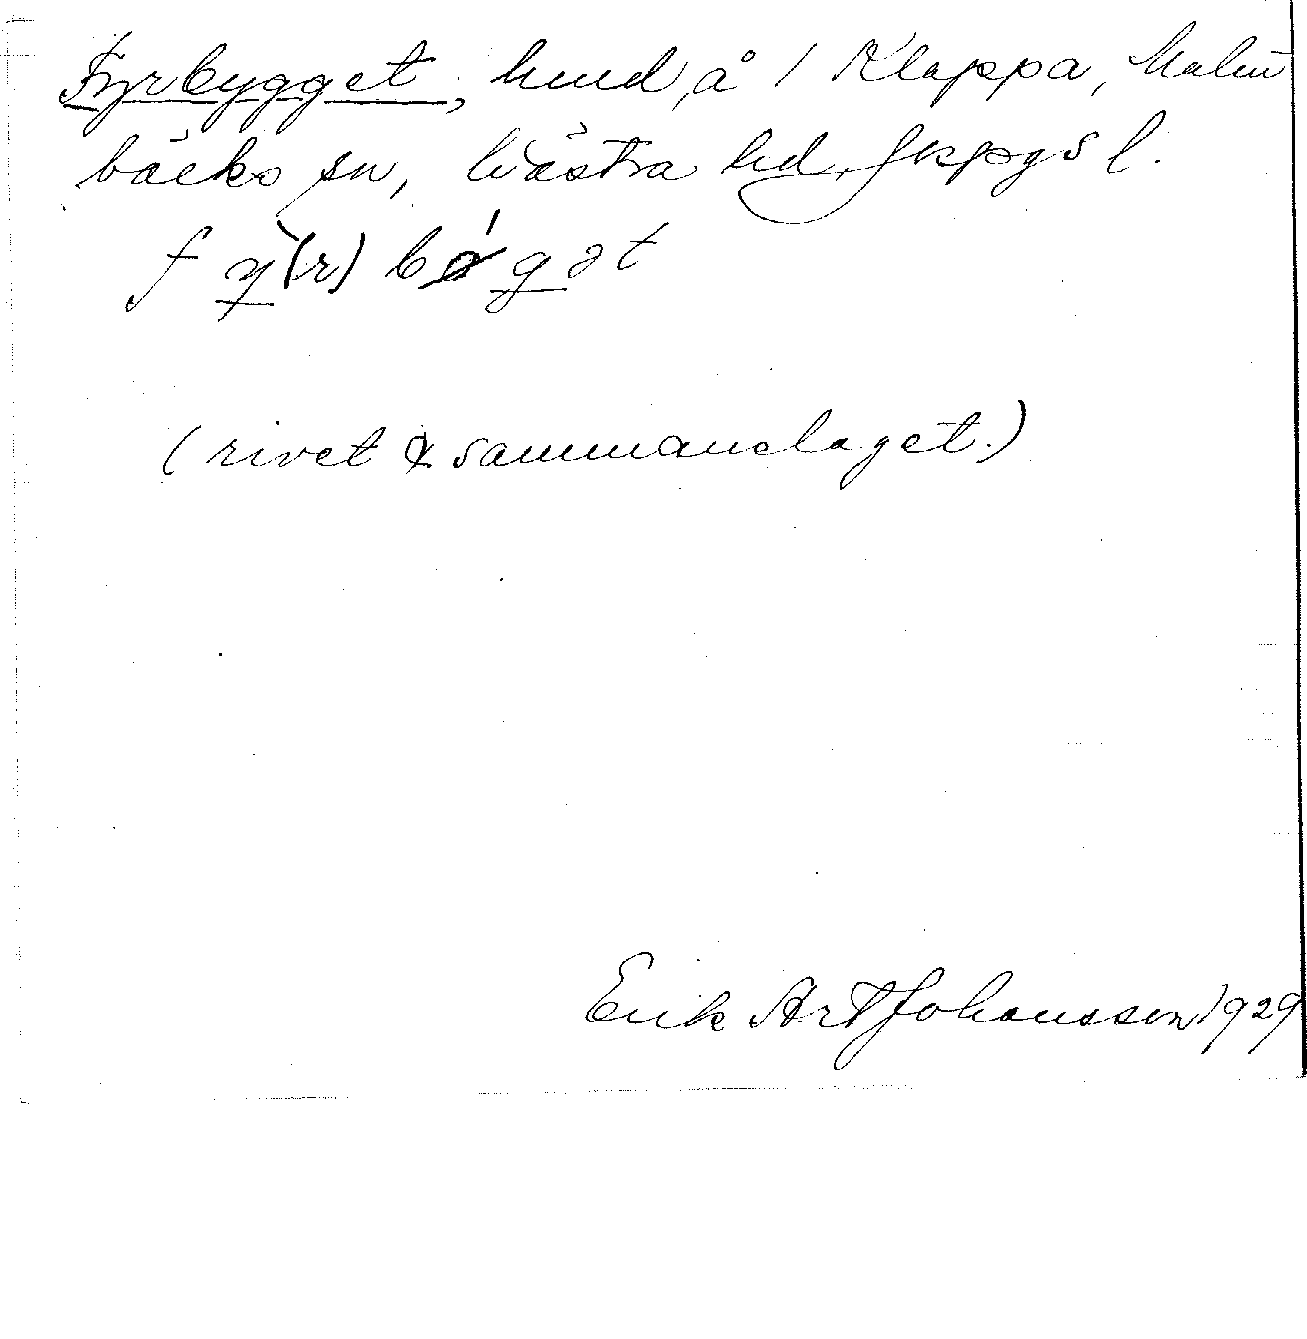 Fyrbygget, hmd, å 1 Klappa, Malm
bäcks sn, Västra hd, Jkpgs l.
f ỳ̱(r) b ǵ ə t
(rivet & sammanslaget.)
Erik Art Johansson 1929